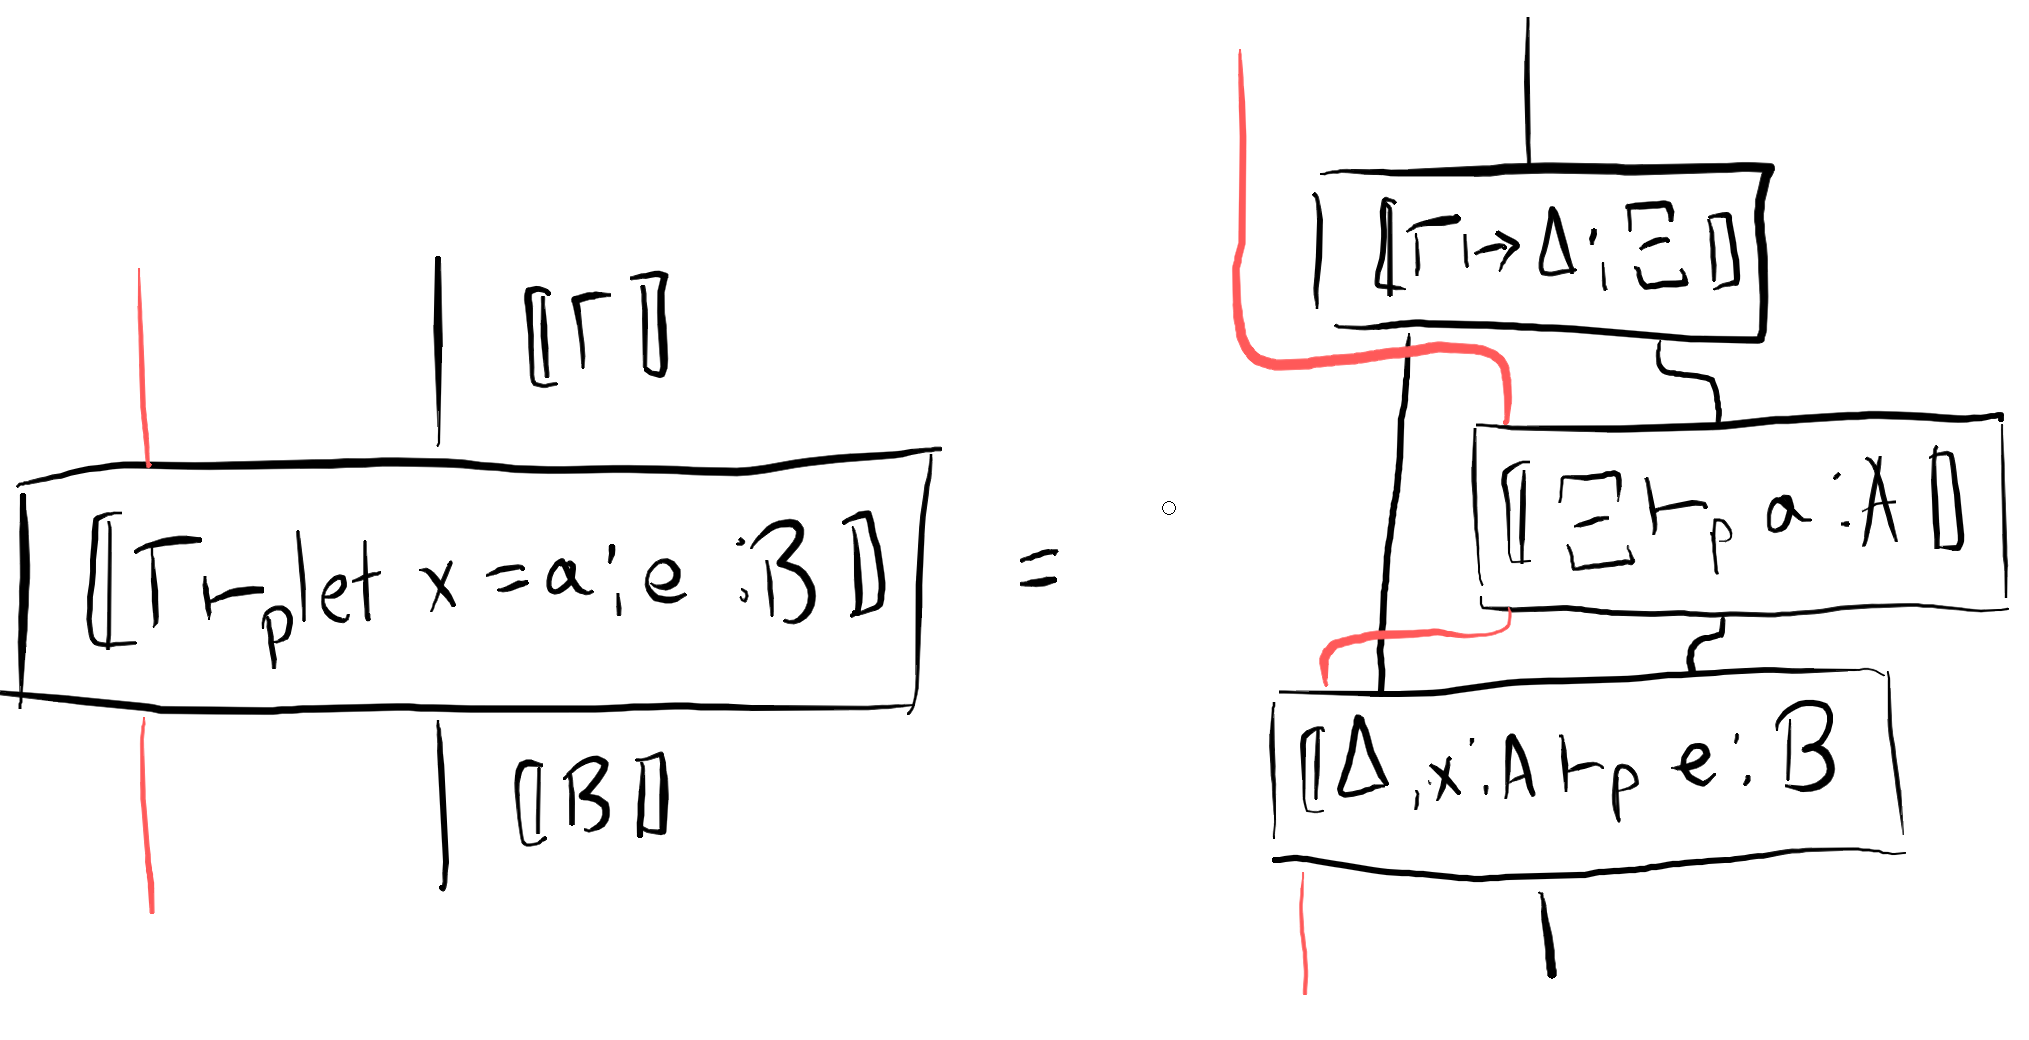 ⟦Γ⟧
⟦Γ ⊢p let x = a; e : B⟧
⟦B⟧
=
⟦Γ ↦ Δ; Ξ⟧
⟦Ξ ⊢p a : A⟧
⟦Δ, x : A ⊢p e : B